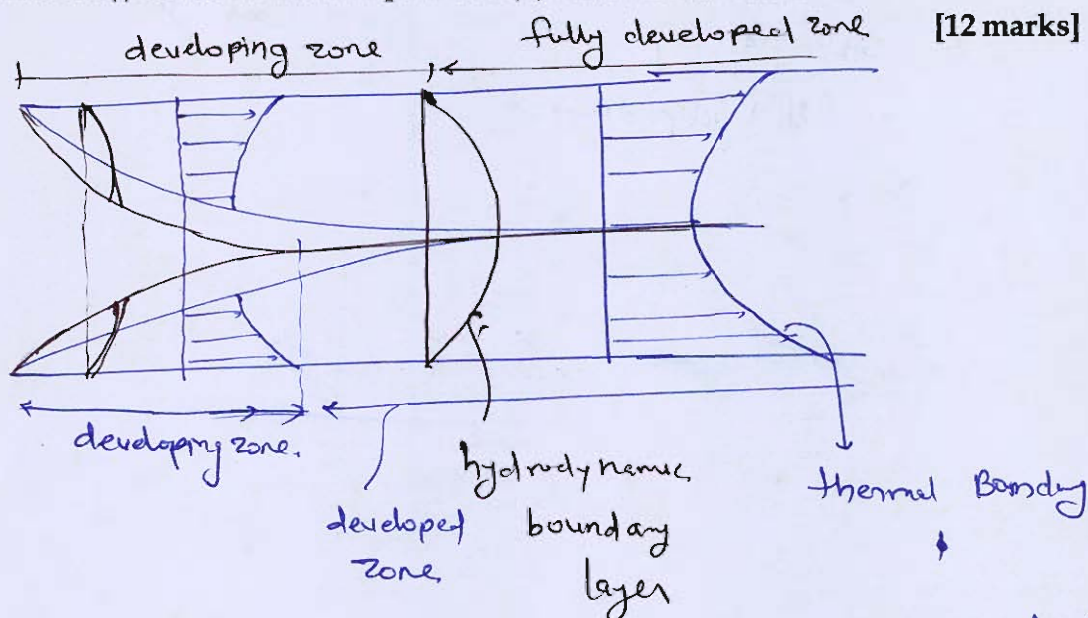 [12 marks]
developing zone
fully developed zone
developing zone.
developed
zone
hydrodynamic
boundary
layer
thermal